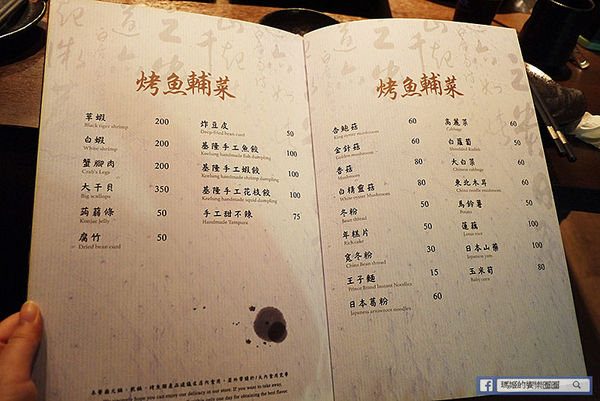 烤魚輔菜
草蝦 200
Black tiger shrimp
白蝦 200
White shrimp
蟹腳肉 200
Crab's Legs
大干貝 350
Big scallops
蒟蒻條 50
Konjac Jelly
腐竹 50
Dried bean curd
炸豆皮 50
Deep-fried bean curd
基隆手工魚餃 100
Keelung handmade fish dumpling
基隆手工蝦餃 100
Keelung handmade shrimp dumpling
基隆手工花枝餃 100
Keelung handmade squid dumpling
手工甜不辣 75
Handmade Tempura
烤魚輔菜
杏鮑菇 60
King oyster mushroom
金針菇 60
Golden mushroom
香菇 80
Mushroom
白精靈菇 80
White oyster Mushroom
冬粉 50
Bean thread
年糕片 50
Rich cake
寬冬粉 30
China Bean thread
王子麵 15
Prince Brand Instant Noodles
日本葛粉 60
Japanese arrowroot noodles
高麗菜 60
Cabbage
白蘿蔔 50
大白菜 60
Chinese cabbage
東北木耳 60
China needle mushroom
馬鈴薯 50
Potato
蓮藕 100
Lotus root
日本山藥 100
Japanese yam
玉米筍 80
Baby corn
瑪姬的饗樂圈圈